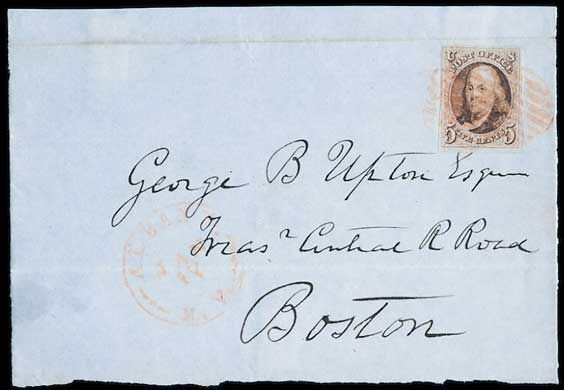 POST OFFICE
5 FIVE CENTS 5
George B Upton Esqr
Treasr Central R Road
Boston